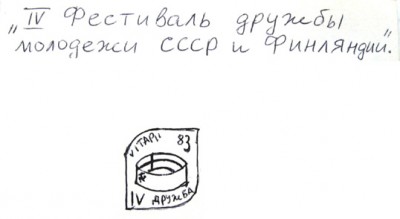 „IV Фестиваль дружбы
молодежи СССР и Финляндии".
83
IV ДРУЖБА